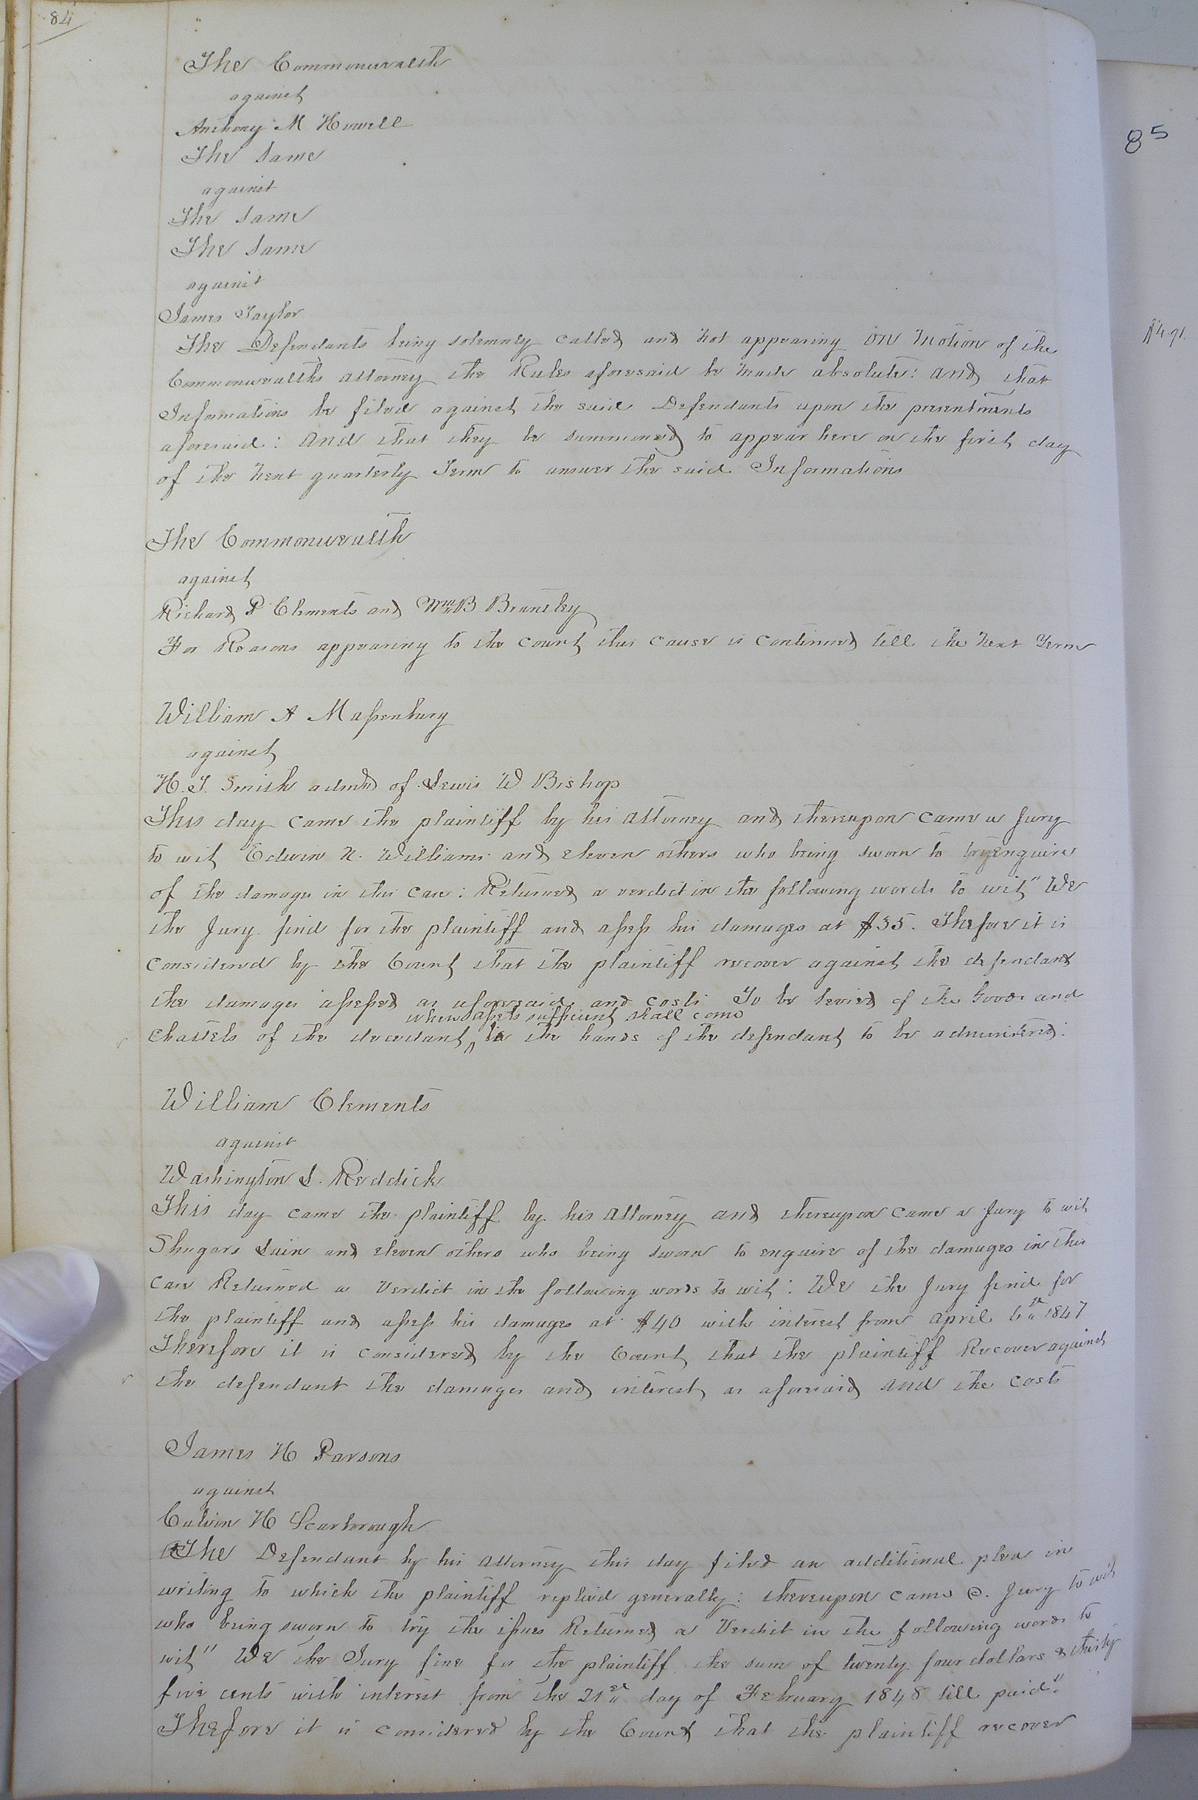 84
The Commonwealth
against
Anthony M Howell
The same
against
The same
The same
against
James Taylor
The Defendants being solemnly called and not appearing on motion of the
Commonwealths attorney the Rules aforesaid be made absolute: and that
Informations be filed against the said Defendants upon the presentments
aforesaid: and that they be summoned to appear here on the first day
of the next quarterly Term to answer the said Informations
The Commonwealth
against
Richard P Clements and Wm B Brantley
For Reasons appearing to the court this cause is continued till the next Term
William A Massenburg
against
H. T. Smith admr of Lewis W Bishop
This day came the plaintiff by his attorney and thereupon came a Jury
to wit Edwin N. Williams and eleven others who being sworn to enquire
of the damages in this case: Returned a verdict in the following words to wit" We
the Jury find for the plaintiff and assess his damages at $35. Thefore it is
considered by the Court that the plaintiff recover against the defendant
the damages assessed as aforesaid and costs To be levied of the Goods and
when assets sufficient shall come
chattels of the decedant to the hands of the defendant to be administered:
William Clements
against
Washington S. Reddick
This day came the plaintiff by his attorney and thereupon came a Jury to wit
Shugars Lain and eleven others who being sworn to enquire of the damages in this
case Returned a Verdict in the following words to wit: We the Jury find for
the plaintiff and assess his damages at $40 with interest from april 6th 1847
Therefore it is considered by the Court that the plaintiff Recover against
the defendant the damages and interest as aforesaid and the costs
James H Parsons
against
Calvin H Scarborough
The Defendant by his attorney this day filed an additional plea in
writing to which the plaintiff replied generally: thereupon came a Jury to wit
who being sworn to try the issues Returned a Verdict in the following words to
wit" We the Jury fine for the plaintiff the sum of twenty four dollars & thirty
five cents with interest from the 21st day of February 1848 till paid"
Thefore it is considered by the Court that the plaintiff recover
85